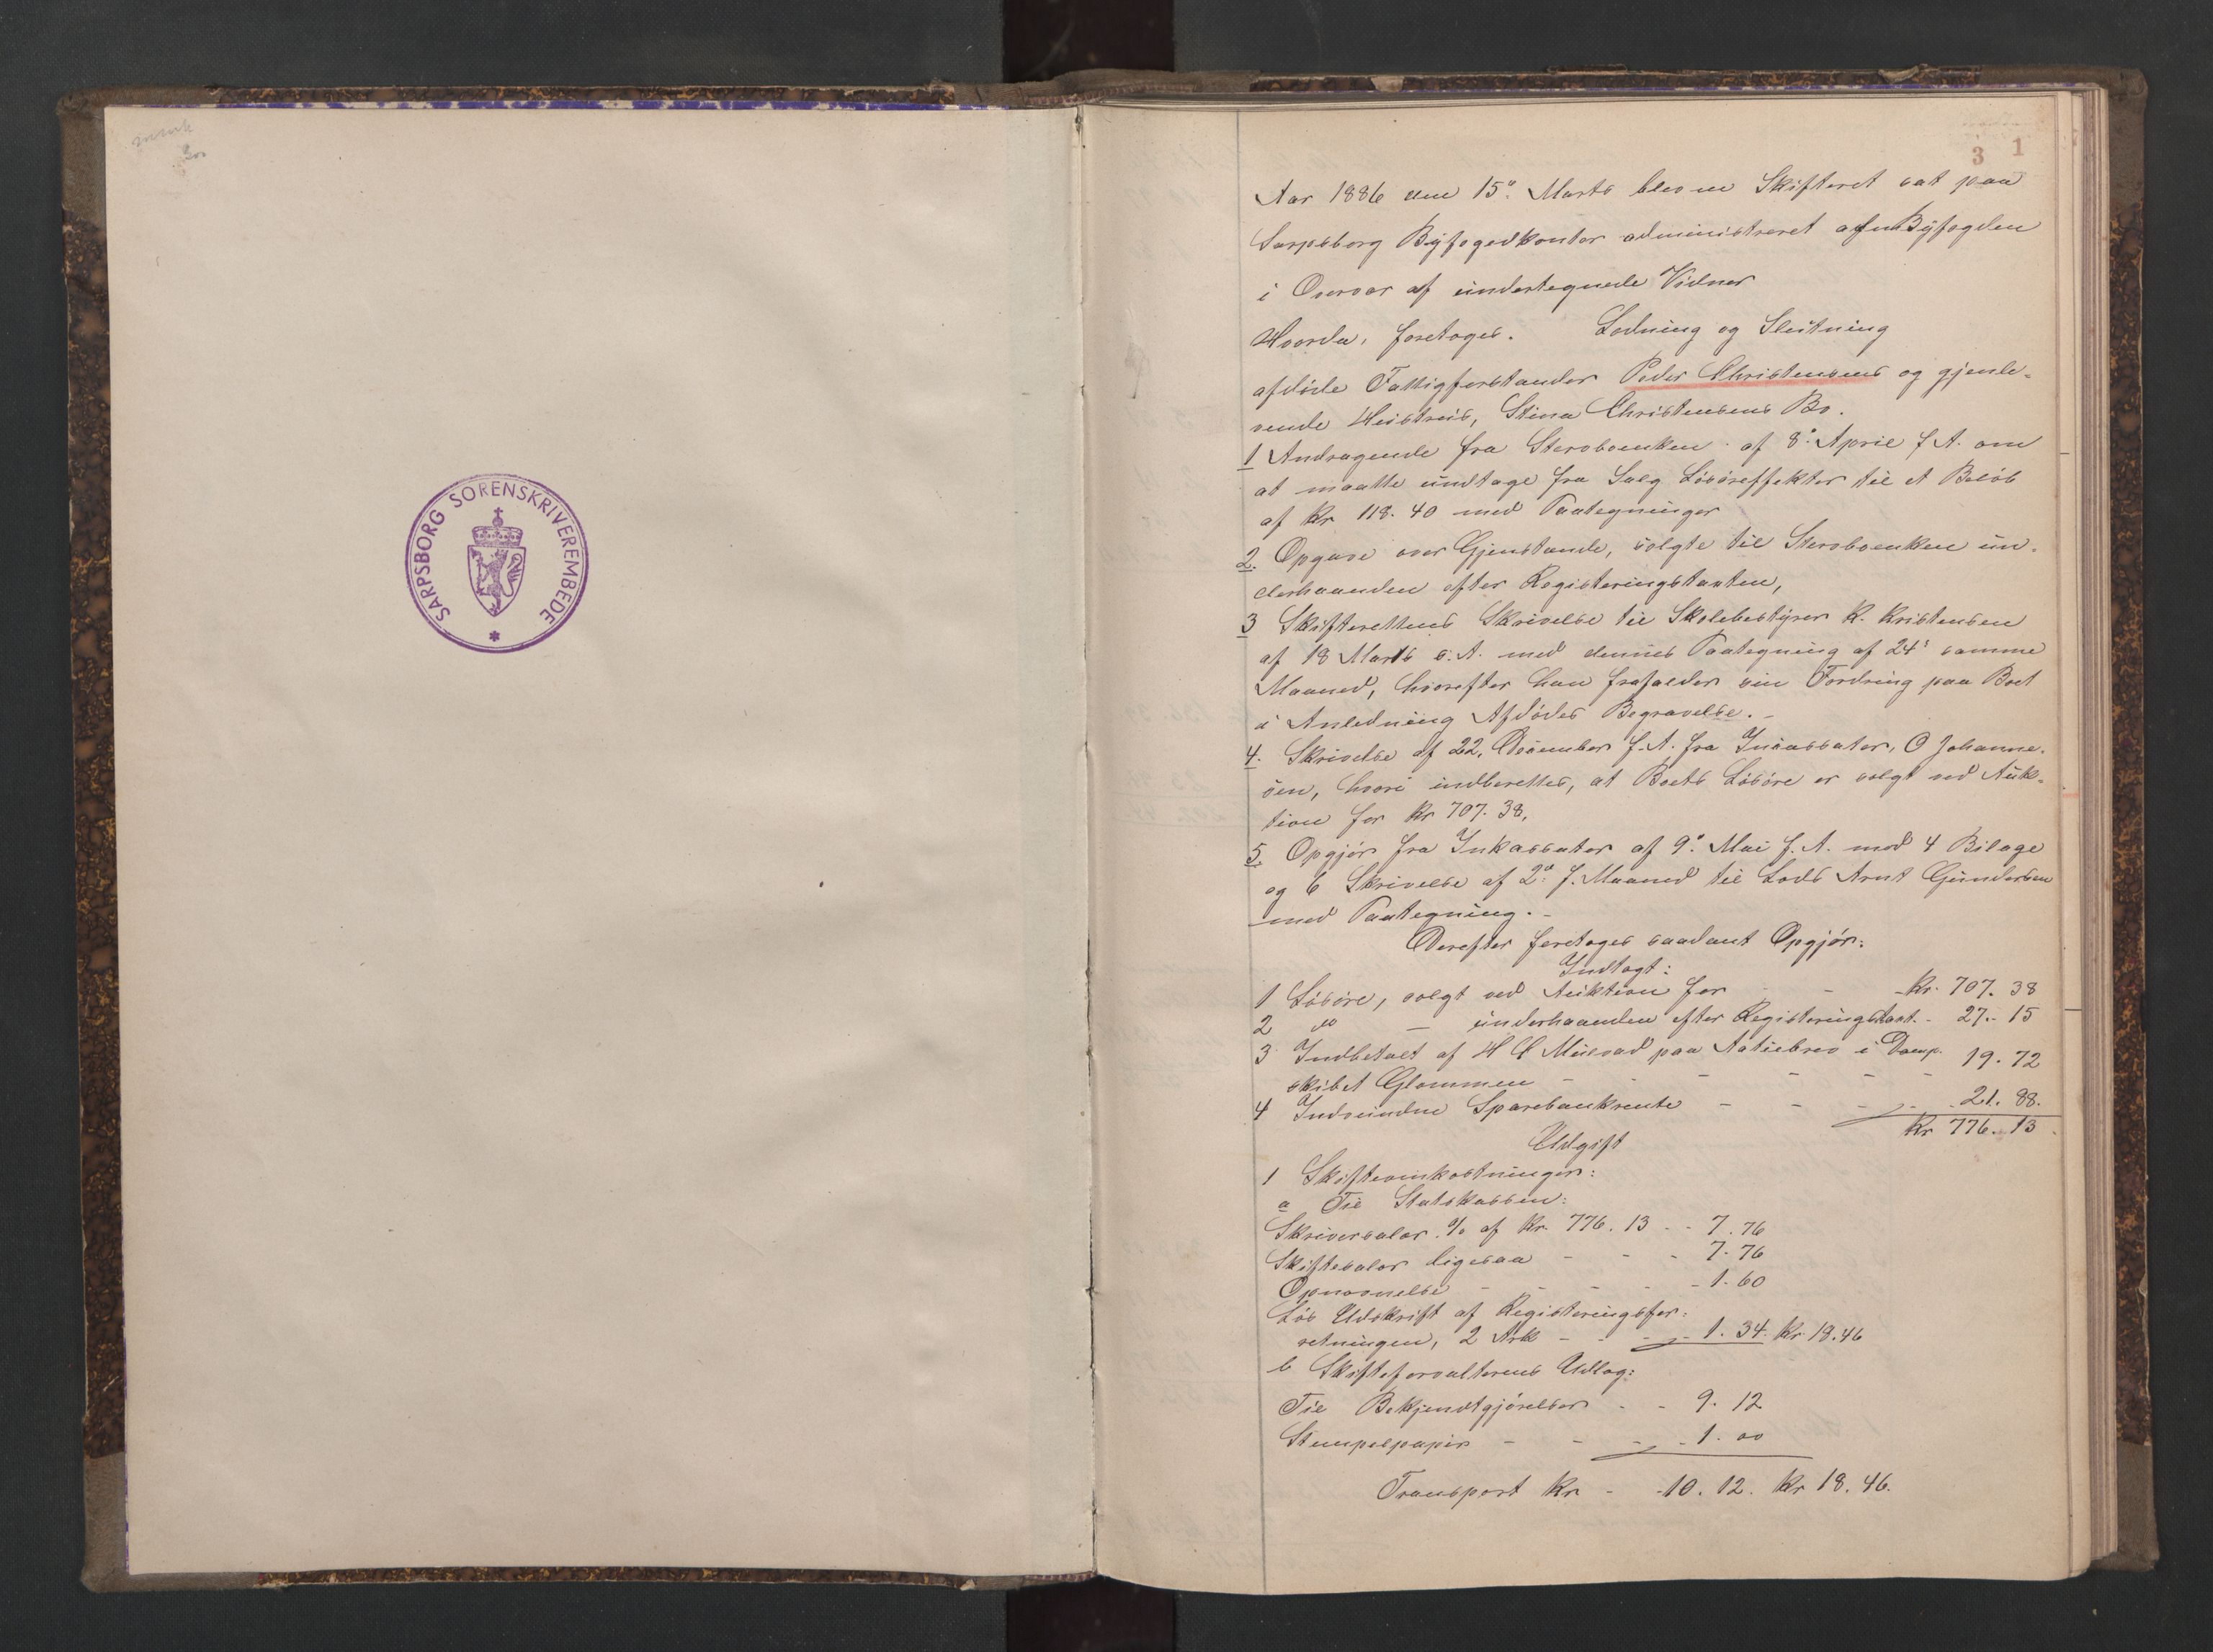 SARPSBORG SORENSKRIVEREMBEDE
3 1
Aar 1886 den 15de Marts blev en Skifteret sat paa
Sarpsborg Byfogedkontor administreret af Byfogden
i Overvær af undertegnede Vidner
Hvorda, foretoges. Lodning og Slutning
afdöde Fattigforstander Peder Christensens og gjenle-
vende Hustrus, Stina Christensens Bo.
1 Andragende fra Stervboenken af 8de April f. A. om
at maatte undtage fra Salg Lösöreffekter til et Belöb
af Kr 118. 40 med Paategninger
2. Opgave over Gjenstande, solgte til Stervboenken un-
derhaanden efter Registeringstaxten,
3 Skifterettens Skrivelse til Skolebestyrer K. Kristensen
af 18 Marts s. A. med dennes Paategning af 24de samme
Maaned, hvorefter han frafalder sin Fordring paa Boet
i Anledning Afdödes Begravelse. -
4. Skrivelse af 22. December f. A. fra Incassator, O Johanne-
sen, hvori indberettes, at Boets Lösöre er solgt ved Auk-
tion for Kr 707. 38,
5. Opgjör fra Inkassator af 9de Mai f. A. med 4 Bilage
og 6 Skrivelse af 2den f. Maaned til Lods Arnt Gundersen
med Paategning. -
Derefter foretoges saadant Opgjör:
Indtægt:
1 Lösöre, solgt ved Auktion for - - Kr. 707. 38
2 do - underhaanden efter Registeringstaxt. - 27. 15
3 Indbetalt af H C paa Actiebrev i Damp-
skibet Glommen - - - - - - 19. 72
4 Indvundne Sparebankrente - - - - 21. 88.
Kr 776. 13
Udgift
1 Skifteomkostninger:
a Til Statskassen:
Skriversalær % af Kr. 776. 13 - - 7. 76
Skiftesalær ligesaa - - - 7. 76
Opnævnelse - - - - - 1. 60
Lös Udskrift af Registeringsfor-
retningen, 2 Ark - - - 1. 34. Kr 18. 46
b Skifteforvalterens Udlæg:
Til Bekjendtgjörelser - - 9. 12
Stempelpapir - - - - 1. 00
Transport Kr - - 10. 12. Kr 18. 46.